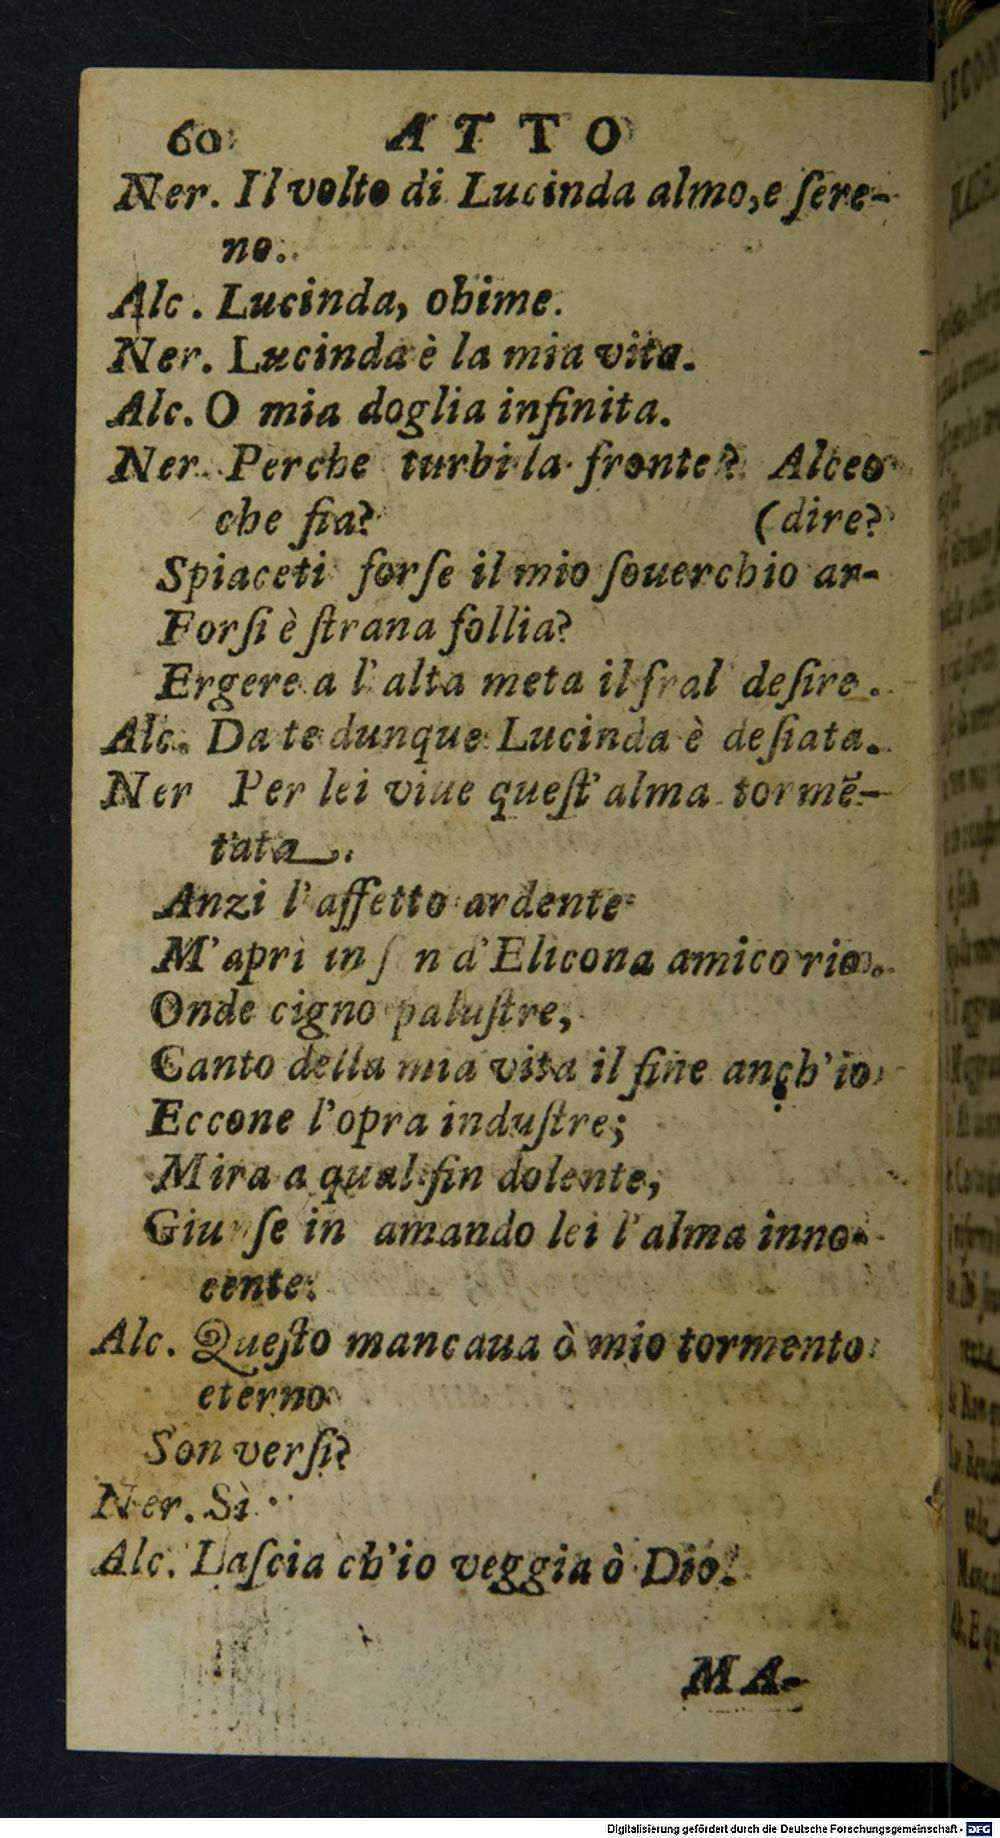 60 ATTO
Ner. Il volto di Lucinda almo,e ſere-
no.
Alc. Lucinda, ohime.
Ner. Lucinda è la mia vita.
Alc. O mia doglia infinita.
Ner. Perche turbi la fronte? Alceo
che ſia? (dire?
Spiaceti forſe il mio ſouerchio ar-
Forſi è ſtrana follia?
Ergere a l'alta meta il fral deſire.
Alc. Da te dunque Lucinda è deſiata.
Ner Per lei viue queſt'alma tormẽ-
tata.
Anzi l'affetto ardente
M'aprì in ſ n d'Elicona amico rio.
Onde cigno paluſtre,
Canto della mia vita il fine anch'io
Eccone l'opra induſtre;
Mira a qual fin dolente,
Giunſe in amando lei l'alma inno-
cente.
Alc. Queſto mancaua ò mio tormento
eterno
Son verſi?
Ner. Sì.
Alc. Laſcia ch'io veggia ò Dio!
MA-
Digitalisierung gefördert durch die Deutsche Forschungsgemeinschaft - DFG